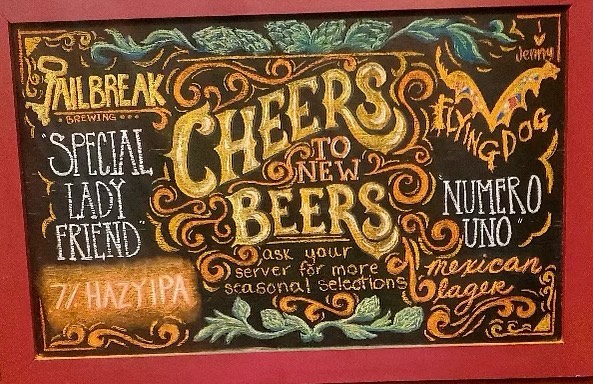 JAILBREAK
BREWING
"SPECIAL
LADY
FRIEND"
7% HAZY IPA
CHEERS
TO
NEW
BEERS
ask your
server for more
seasonal selections
Jenny
FLYING DOG
"NUMERO
UNO"
mexican
lager